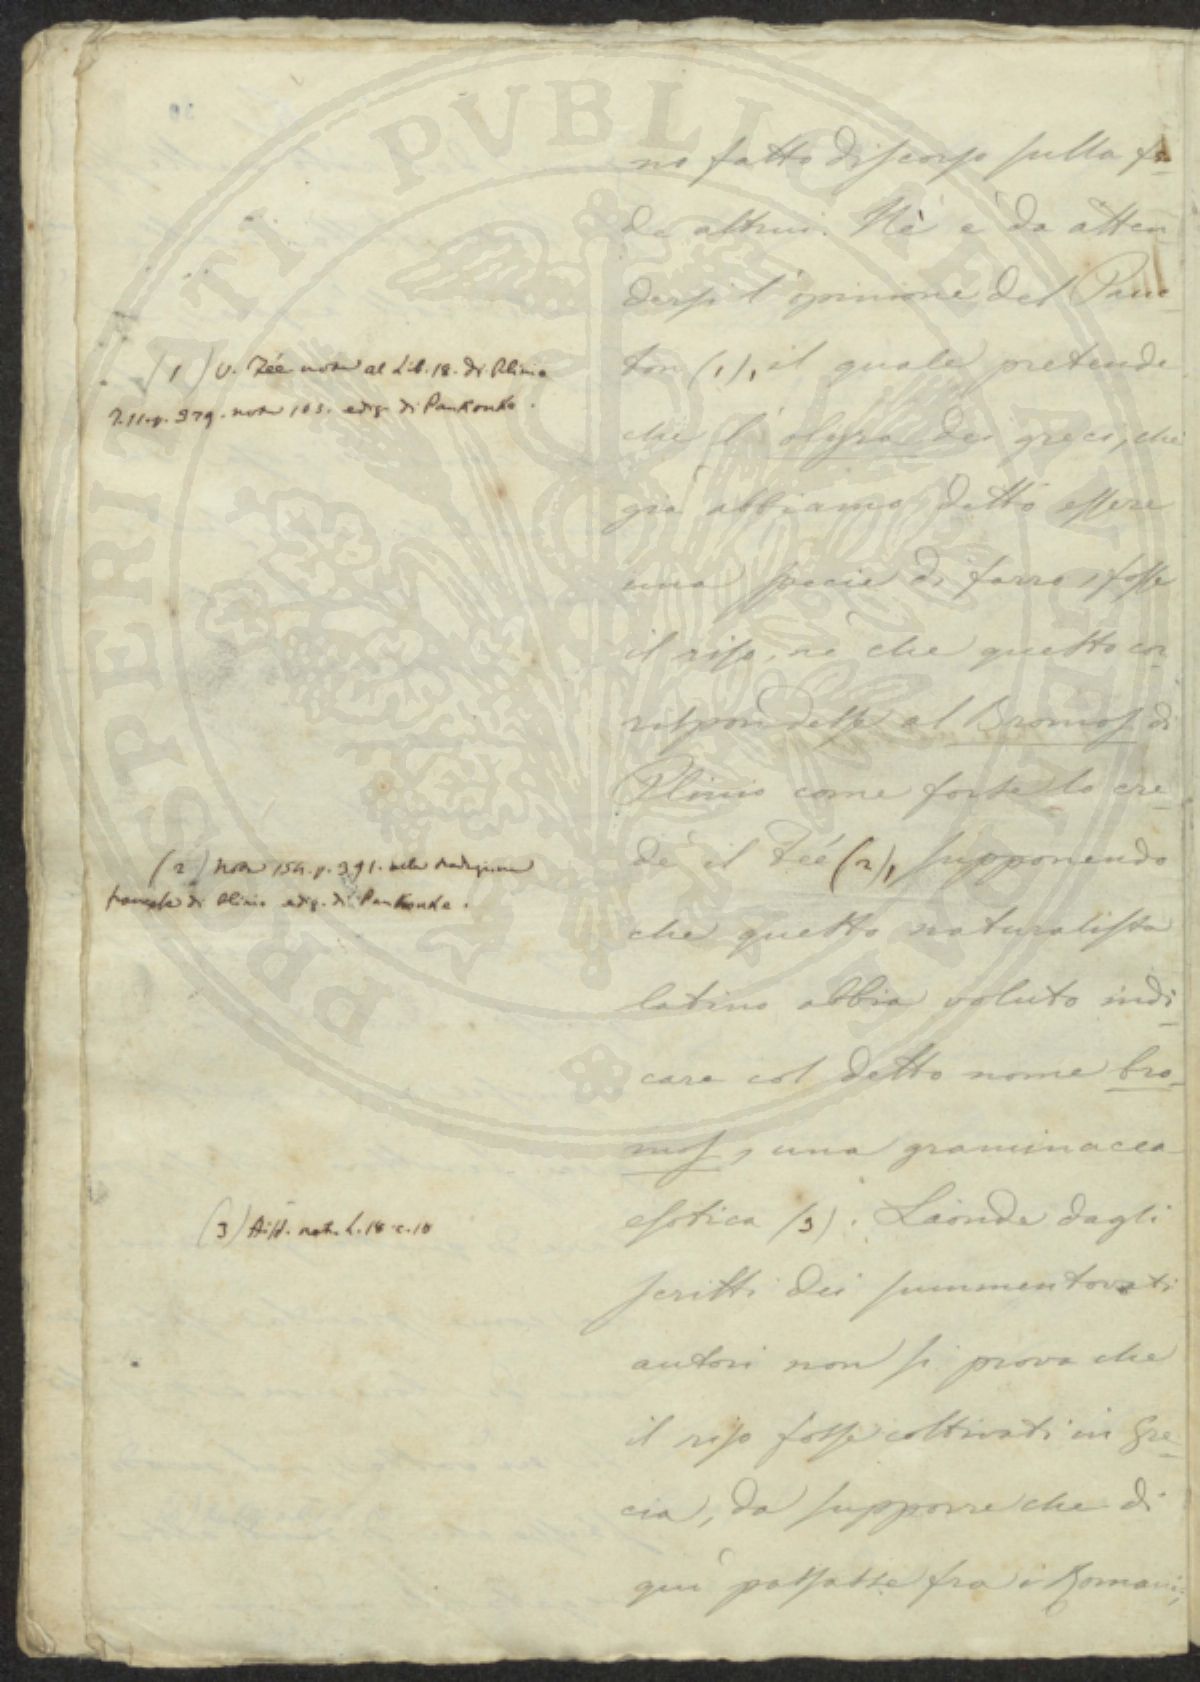 no fatto discorso sulla fe-
de altrui. Nè è da atten
dersi l'opinione del Pauc-
ton (1), il quale pretende
che l'olyra dei greci, che
già abbiamo detto essere
una specie di farro, fosse
il riso, nè che questo cor
rispondesse al Bromos di
Plinio come forse lo cre-
dè il Fée (2), supponendo
che questo naturalista
latino abbia voluto indi-
care col detto nome bro-
mos, una graminacea
esotica (3). Laonde dagli
scritti dei summentovati
autori non si prova che
il riso fosse coltivati in Gre-
cia, da supporre che di
qui passasse fra i Romani;
(1) V. Fée nota al Lib. 18. di Plinio
T. 11. p. 379. nota 103. ediz. di Pankouke.
(2) Nota 154. p. 391. nella traduzione
francese di Plinio ediz. di Pankouke.
(3) Hist. nat. L. 18 c. 10
PROSPERITATI PVBLICAE AVGENDAE